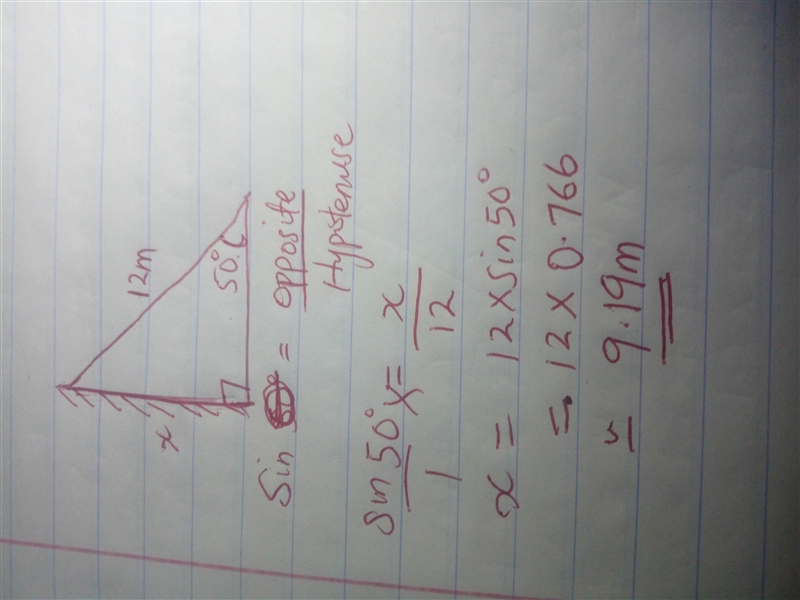 12m
x
50°
Sin = opposite
Hypotenuse
Sin 50° = x
1 12
x = 12 x sin 50°
= 12 x 0.766
= 9.19m